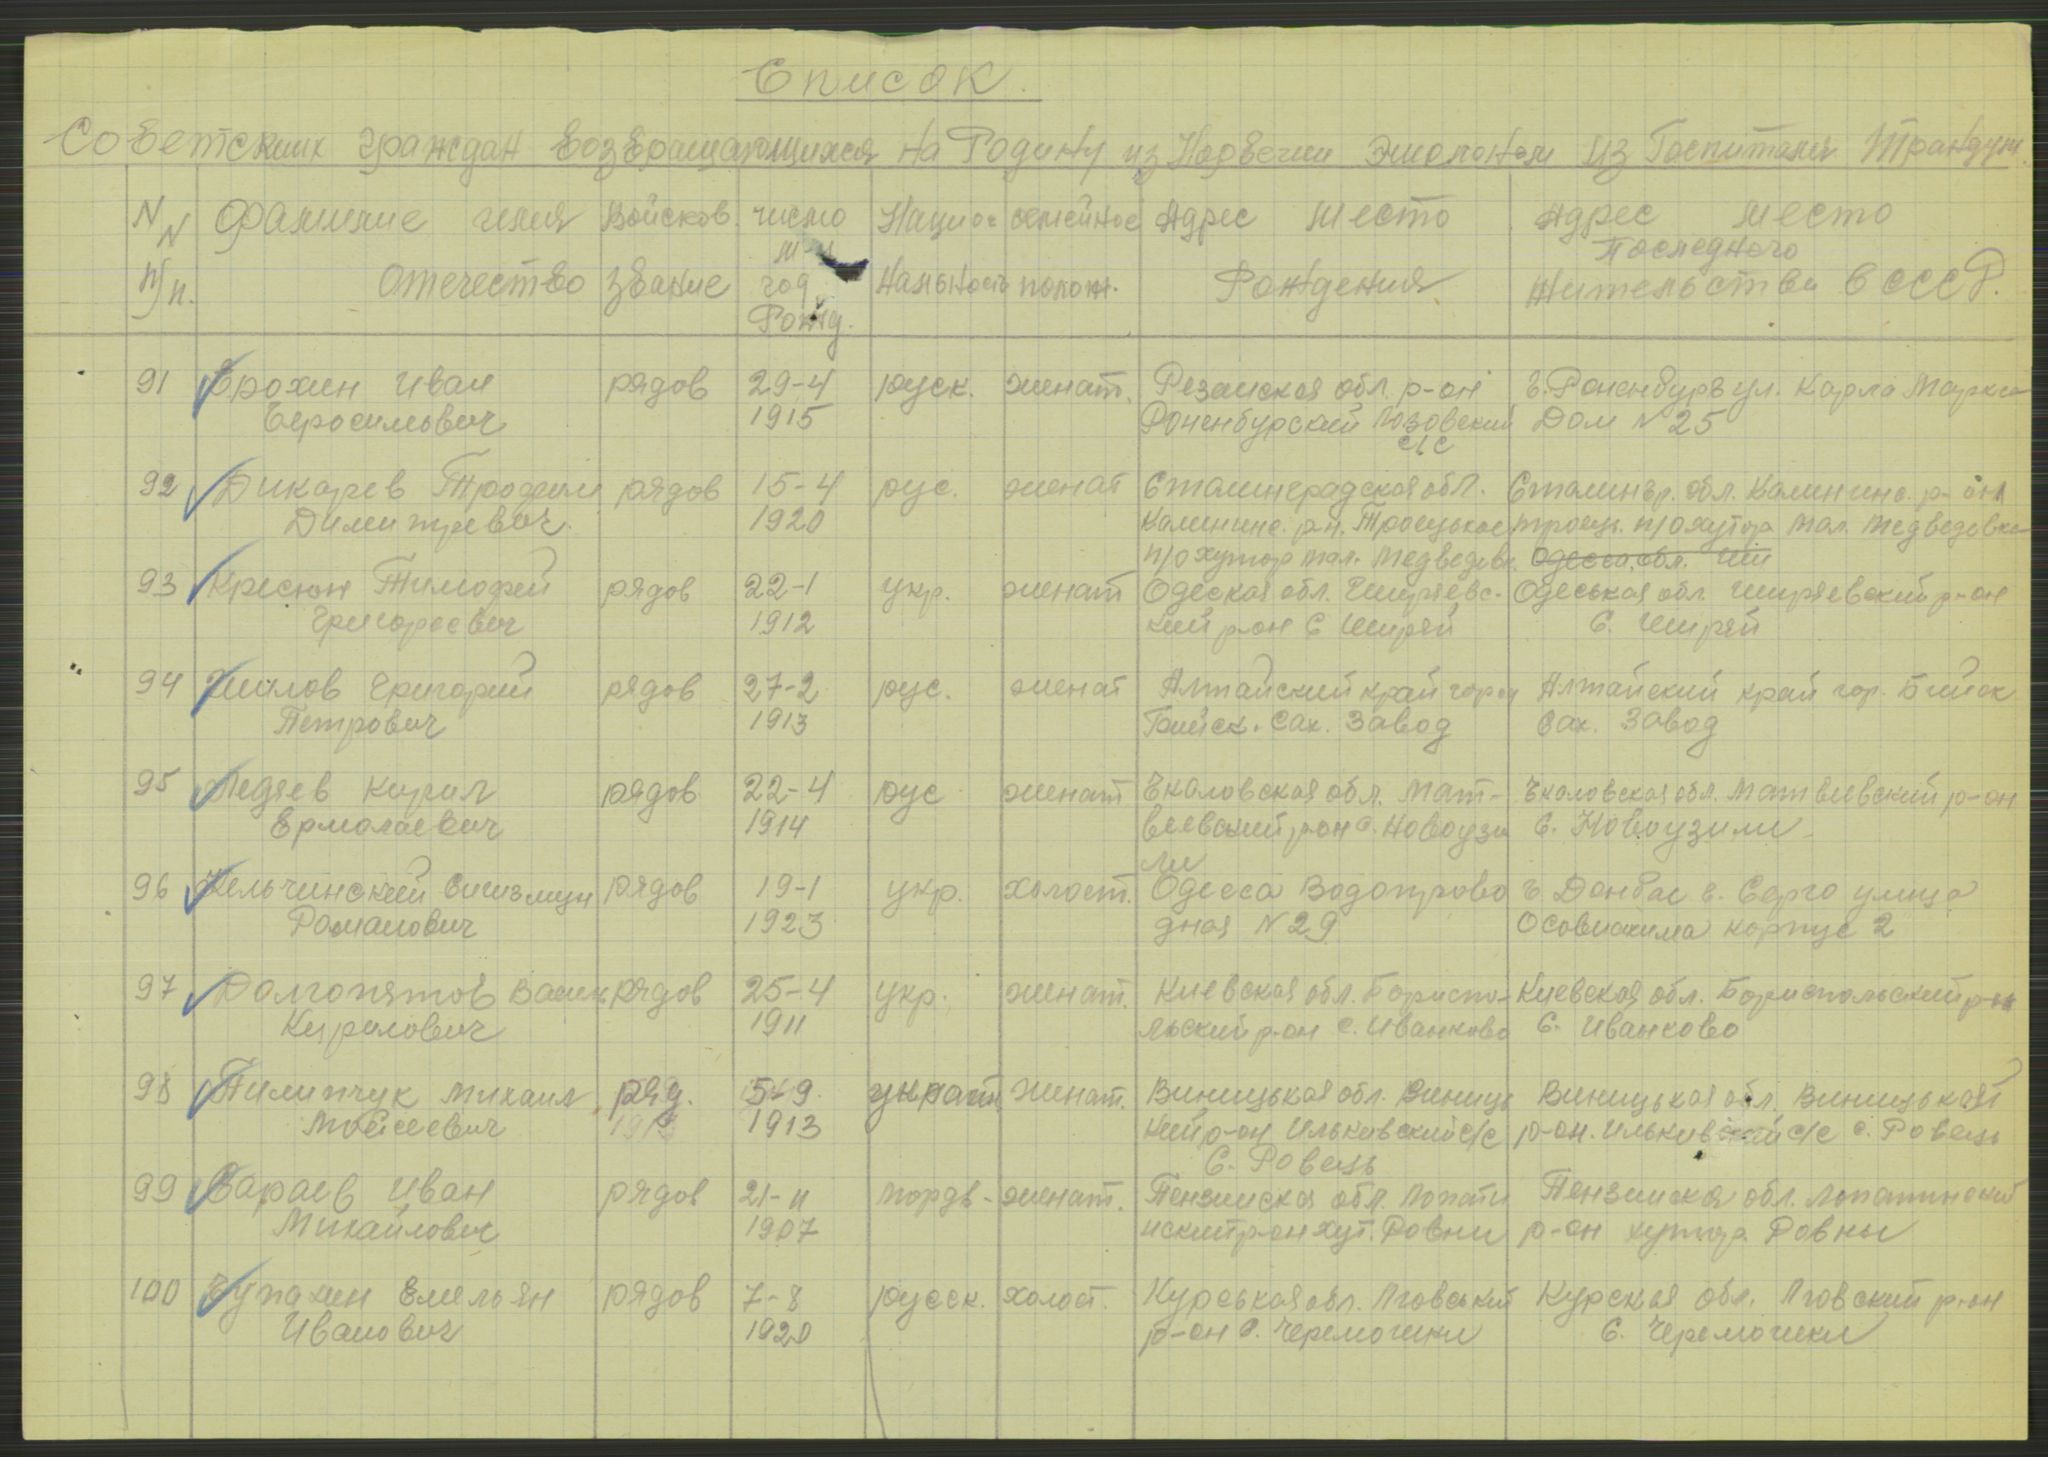 Список.
Советских граждан возвращающихся на Родину из Норвегии эшолоном из Госпиталя Трандум.
NN Фамилие имя Войсков. число Национ семейное Адрес место Адрес место
м-ц Последнего
п/п. Отечество звание год нальность полож. Рождения Жительства в СССР.
Рожд.
91 Ерохин Иван рядов 29-4 руск. женат. Резанская обл. р-он г. Раненбург ул. Карла Маркса
Геросимович 1915 Раненбурский Лозовский Дом N 25
с/с
92 Дикарев Трофим рядов 15-4 рус. женат Сталинградская обл. Сталингр. обл. Калининс. р-он
Димитревич. 1920 Калининс. р-н. Троецькое троецк. п/о хутор Мал. Медведовка
п/о хутор мал. Медведев. Одесса. обл. Ши
93 Кресюн Тимофей рядов 22-1 укр. женат Одеская обл. Ширяевс- Одеськая обл. Ширяевский р-он
Григорьевич 1912 кий р-он С Ширяй С. Ширяй
94 Шилов Григорий рядов 27-2 рус. женат Алтайский край город Алтайский край гор. Бийск
Петрович 1913 Бийск. Сах. Завод Сах. Завод
95 Педяев Кирил рядов 22-4 рус женат Чкаловская обл. Мат- Чкаловская обл. Матвеевский р-он
Ермолаевич 1914 веевский р-он с. Новоузи С. Новоузили
ли
96 Кельчинский Сигизмун рядов 19-1 укр. холост. Одесса Водопрово г. Донбас г. Серго улица
Романович 1923 дная N 29 Осовиахима корпус 2
97 Долгопятов Васил рядов 25-4 укр. женат. Киевская обл. Бориспо- Киевская обл. Бориспольский р-он
Кирилович 1911 льский р-он с. Иванково С. Иванково
98 Пилипчук Михаил ряд. 5-9 женат. Виницькая обл. Виниць Виницькая обл. Виницькай
Моисеевич 1913 кий р-он Илькивский с/с р-он. Илькивский с/с с. Ровець
С. Ровець
99 Сараев Иван рядов 21-11 мордв- женат. Пензинская обл. Лопати Пензинская обл. Лопатинский
Михайлович 1907 нский р-он хут. Ровни р-он хутор Ровны
100 Чупахин Емельян рядов 7-8 русск. холост. Курськая обл. Лговський Курская обл. Лговский р-он
Иванович 1920 р-он с. Черемошки С. Черемошки